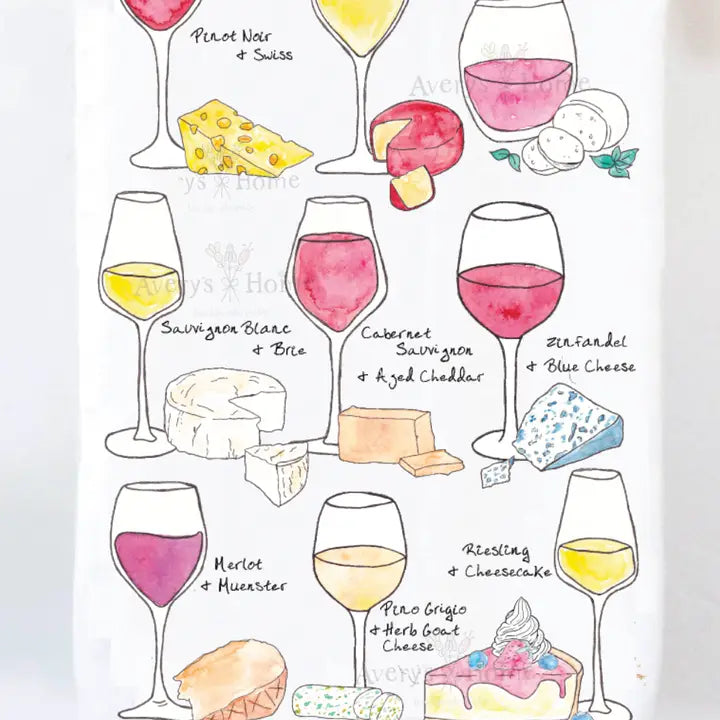 Pinot Noir
& Swiss
Avery's Home
ry's Home
Avery's Home
Sauvignon Blanc
& Brie
Cabernet
Sauvignon
& Aged Cheddar
Zinfandel
& Blue Cheese
Merlot
& Muenster
Riesling
& Cheesecake
Pino Grigio
& Herb Goat
Cheese
Avery's Home